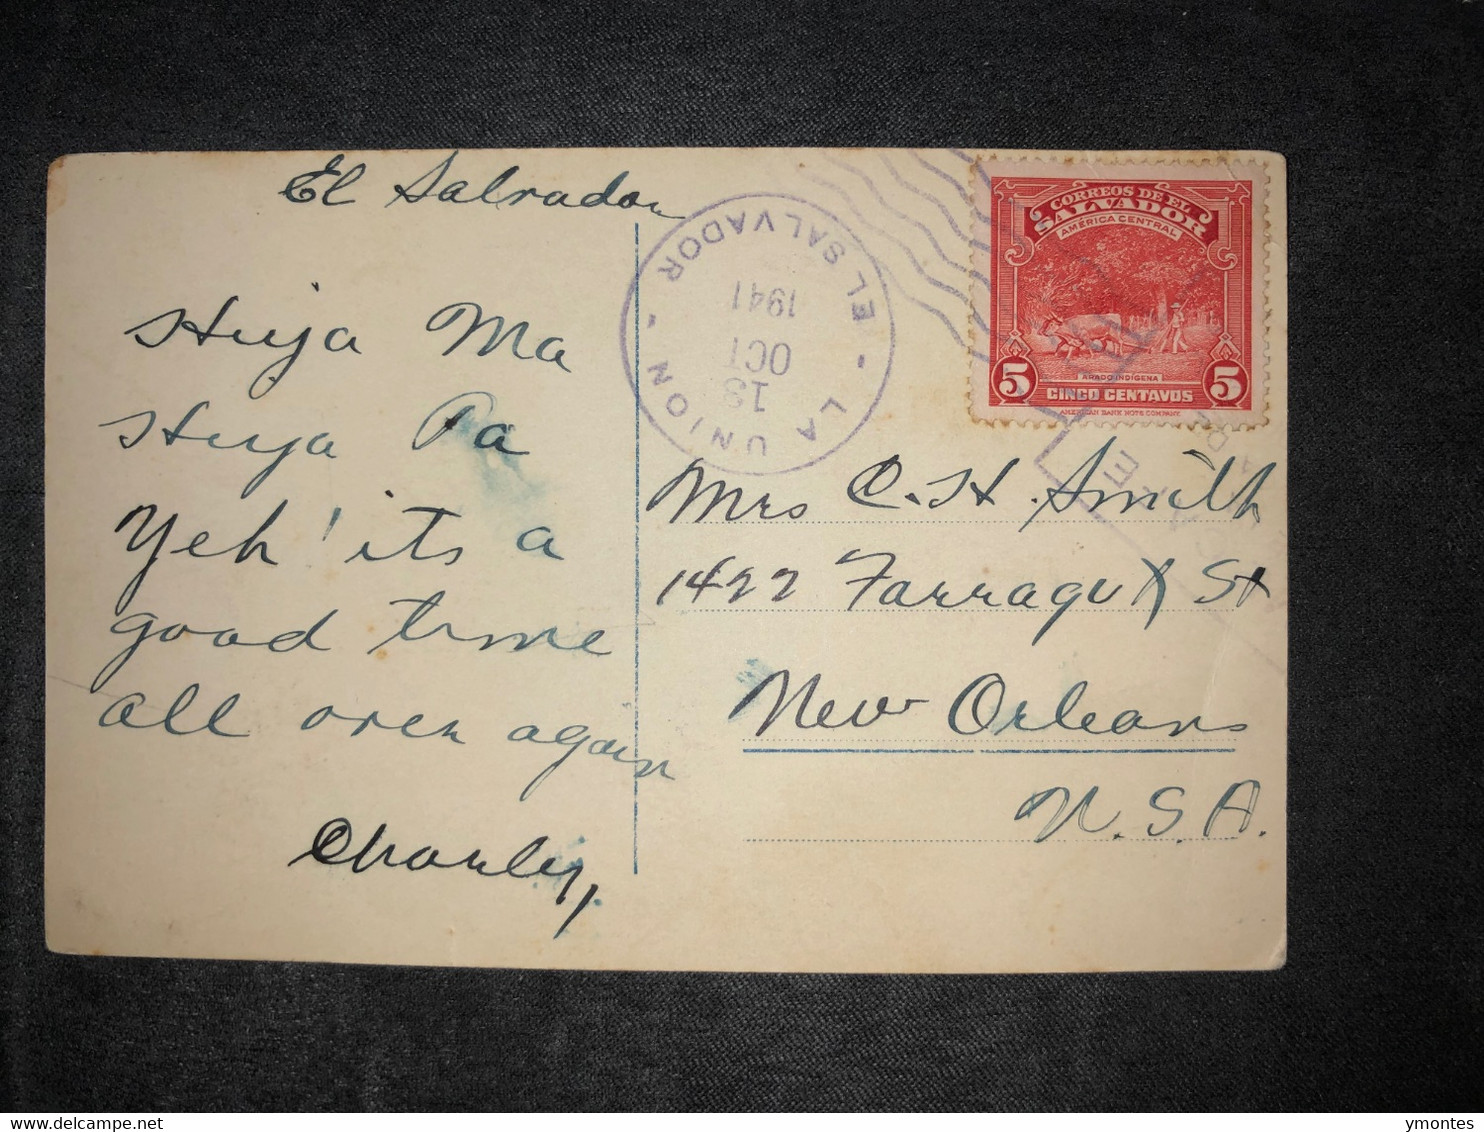 El Salvador
Huja Ma
Huya Pa
Yeh! its a
good time
all over again
Charley,
LA UNION - EL SALVADOR -
13
OCT
1941
CORREOS DE EL
SALVADOR
AMÉRICA CENTRAL
ARADO INDÍGENA
5 CINCO CENTAVOS 5
AMERICAN BANK NOTE COMPANY
Mrs C. H. Smith
1422 Farragut St
New Orleans
U.S.A.
delcampe.net
ymontes